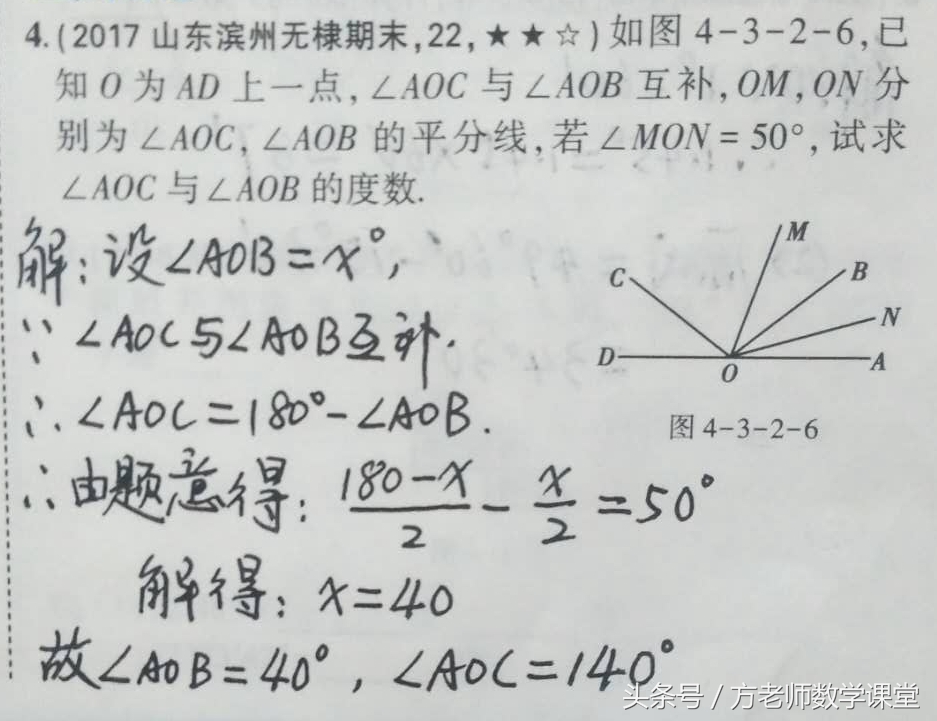 4.(2017 山东滨州无棣期末,22,★★☆)如图 4-3-2-6,已
知 O 为 AD 上一点,∠AOC 与∠AOB 互补,OM,ON 分
别为∠AOC,∠AOB 的平分线,若∠MON=50°,试求
∠AOC 与∠AOB 的度数.
解:设∠AOB=x°,
∵ ∠AOC与∠AOB互补.
∴ ∠AOC=180°-∠AOB.
∴由题意得: (180-x)/2 - x/2 =50°
解得: x=40
故∠AOB=40°, ∠AOC=140°
M
C
B
N
D
O
A
图 4-3-2-6
头条号 / 方老师数学课堂